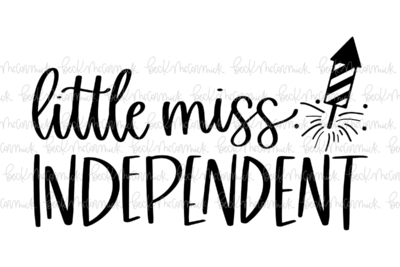 little miss
INDEPENDENT